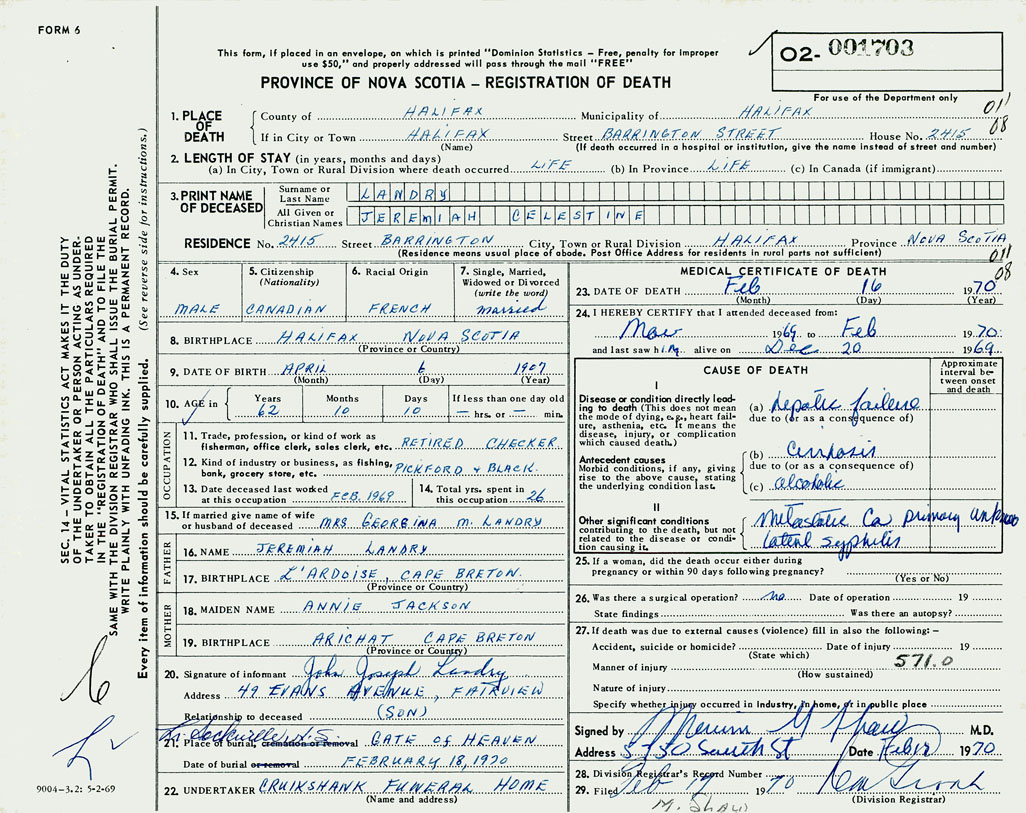 FORM 6
This form, if placed in an envelope, on which is printed "Dominion Statistics – Free, penalty for improper
use $50," and properly addressed will pass through the mail "FREE"
PROVINCE OF NOVA SCOTIA – REGISTRATION OF DEATH
02- 001703
For use of the Department only
011
08
1. PLACE OF DEATH
County of HALIFAX Municipality of HALIFAX
If in City or Town HALIFAX Street BARRINGTON STREET House No. 2415
(Name) (If death occurred in a hospital or institution, give the name instead of street and number)
2. LENGTH OF STAY (in years, months and days)
(a) In City, Town or Rural Division where death occurred LIFE (b) In Province LIFE (c) In Canada (if immigrant)
3. PRINT NAME OF DECEASED
Surname or Last Name LANDRY
All Given or Christian Names JEREMIAH CELESTINE
RESIDENCE No. 2415 Street BARRINGTON City, Town or Rural Division HALIFAX Province NOVA SCOTIA
(Residence means usual place of abode. Post Office Address for residents in rural parts not sufficient)
011
08
4. Sex
MALE
5. Citizenship
(Nationality)
CANADIAN
6. Racial Origin
FRENCH
7. Single, Married,
Widowed or Divorced
(write the word)
married
8. BIRTHPLACE HALIFAX NOVA SCOTIA
(Province or Country)
9. DATE OF BIRTH APRIL 6 1907
(Month) (Day) (Year)
10. AGE in
Years Months Days If less than one day old
62 10 10 – hrs. or – min.
OCCUPATION
11. Trade, profession, or kind of work as
fisherman, office clerk, sales clerk, etc. RETIRED CHECKER
12. Kind of industry or business, as fishing,
bank, grocery store, etc. PICKFORD & BLACK.
13. Date deceased last worked
at this occupation FEB. 1969
14. Total yrs. spent in
this occupation 26
15. If married give name of wife
or husband of deceased MRS GEORGINA M. LANDRY
FATHER
16. NAME JEREMIAH LANDRY
17. BIRTHPLACE L'ARDOISE, CAPE BRETON.
(Province or Country)
MOTHER
18. MAIDEN NAME ANNIE JACKSON
19. BIRTHPLACE ARICHAT CAPE BRETON
(Province or Country)
20. Signature of informant John Joseph Landry
Address 49 EVANS AVENUE, FAIRVIEW
Relationship to deceased (SON)
Sackville, N.S.
21. Place of burial, cremation or removal GATE OF HEAVEN
Date of burial or removal FEBRUARY 18, 1970
22. UNDERTAKER CRUIKSHANK FUNERAL HOME
(Name and address)
MEDICAL CERTIFICATE OF DEATH
23. DATE OF DEATH Feb 16 1970
(Month) (Day) (Year)
24. I HEREBY CERTIFY that I attended deceased from:
1969 to Feb 1970
and last saw him alive on Dec 20 1969
CAUSE OF DEATH
Approximate
interval be-
tween onset
and death
I
Disease or condition directly lead-
ing to death (This does not mean
the mode of dying, e.g., heart fail-
ure, asthenia, etc. It means the
disease, injury, or complication
which caused death.)
(a) hepatic failure
due to (or as a consequence of)
Antecedent causes
Morbid conditions, if any, giving
rise to the above cause, stating
the underlying condition last.
(b) Cirrhosis
due to (or as a consequence of)
(c) alcoholic
II
Other significant conditions
contributing to the death, but not
related to the disease or condi-
tion causing it.
Metastatic Ca primary unknown
latent syphilis
25. If a woman, did the death occur either during
pregnancy or within 90 days following pregnancy?
(Yes or No)
26. Was there a surgical operation? no Date of operation 19
State findings Was there an autopsy?
27. If death was due to external causes (violence) fill in also the following: –
Accident, suicide or homicide? Date of injury 19
(State which)
571.0
Manner of injury
(How sustained)
Nature of injury
Specify whether injury occurred in Industry, in home, or in public place
Signed by M.D.
Address 5950 South St Date Feb 17 1970
28. Division Registrar's Record Number
29. Filed Feb 17 1970
(Division Registrar)
M. Shaw
SEC. 14 – VITAL STATISTICS ACT MAKES IT THE DUTY
OF THE UNDERTAKER OR PERSON ACTING AS UNDER-
TAKER TO OBTAIN ALL THE PARTICULARS REQUIRED
IN THE "REGISTRATION OF DEATH" AND TO FILE THE
SAME WITH THE DIVISION REGISTRAR WHO SHALL ISSUE THE BURIAL PERMIT.
WRITE PLAINLY WITH UNFADING INK. THIS IS A PERMANENT RECORD.
Every item of information should be carefully supplied. (See reverse side for instructions.)
9004-3.2: 5-2-69